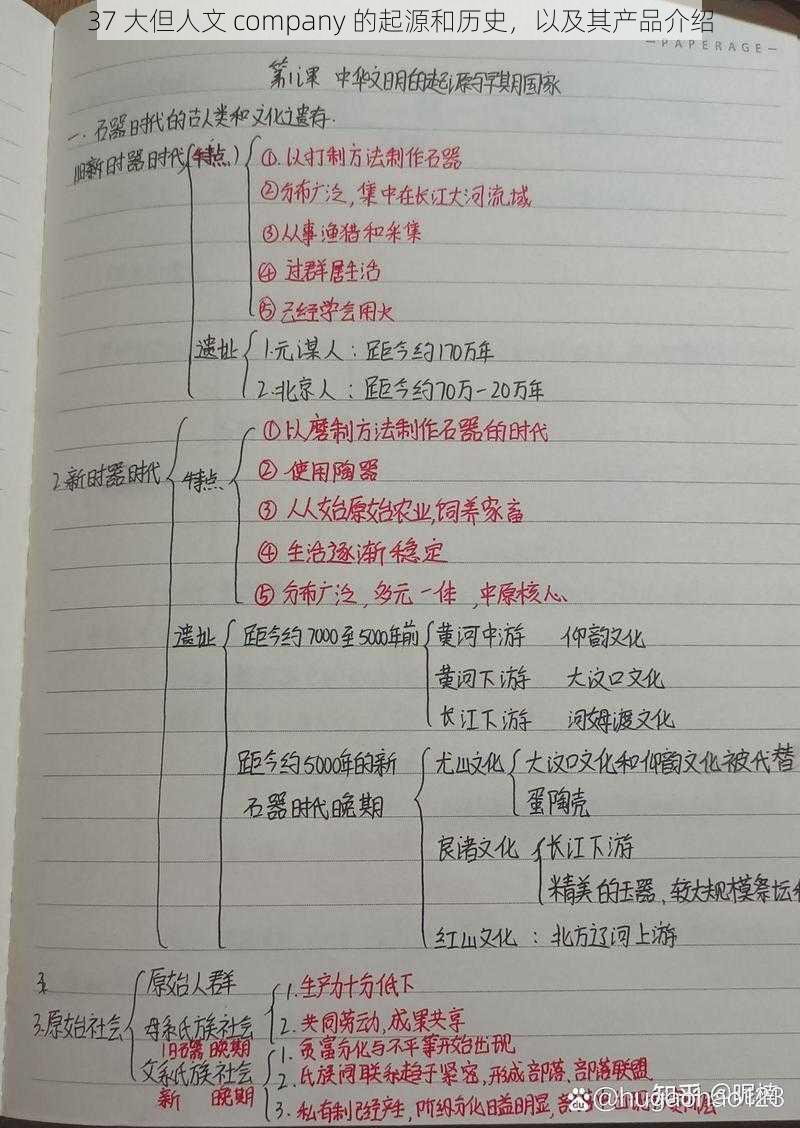 37 大但人文 company 的起源和历史，以及其产品介绍
PAPERAGE
第1课 中华文明的起源与早期国家
一、石器时代的古人类和文化遗存.
旧新时器时代(特点)
①. 以打制方法制作石器
②分布广泛,集中在长江大河流域
③从事渔猎和采集
④ 过群居生活
⑤ 已经学会用火
遗址
1.元谋人:距今约170万年
2.北京人:距今约70万-20万年
2.新时器时代
特点
①以磨制方法制作石器的时代
② 使用陶器
③ 人从始原始农业,饲养家畜
④ 生活逐渐稳定
⑤ 分布广泛,多元一体,中原核心
遗址
距今约7000至5000年前
黄河中游 仰韵文化
黄河下游 大汶口文化
长江下游 河姆渡文化
距今约5000年的新
石器时代晚期
尤山文化
大汶口文化和仰韵文化被代替
蛋陶壳
良渚文化
长江下游
精美的玉器、较大规模祭坛
红山文化:北方辽河上游
3.原始社会
原始人群
母系氏族社会
旧石器晚期
1.生产力十分低下
2.共同劳动,成果共享
父系氏族社会
新 晚期
1.贫富分化与不平等开始出现
2.氏族间联系趋于紧密,形成部落、部落联盟.
3.私有制已经产生,阶级分化日益明显,
知乎 @昵楠
@hugaohao123